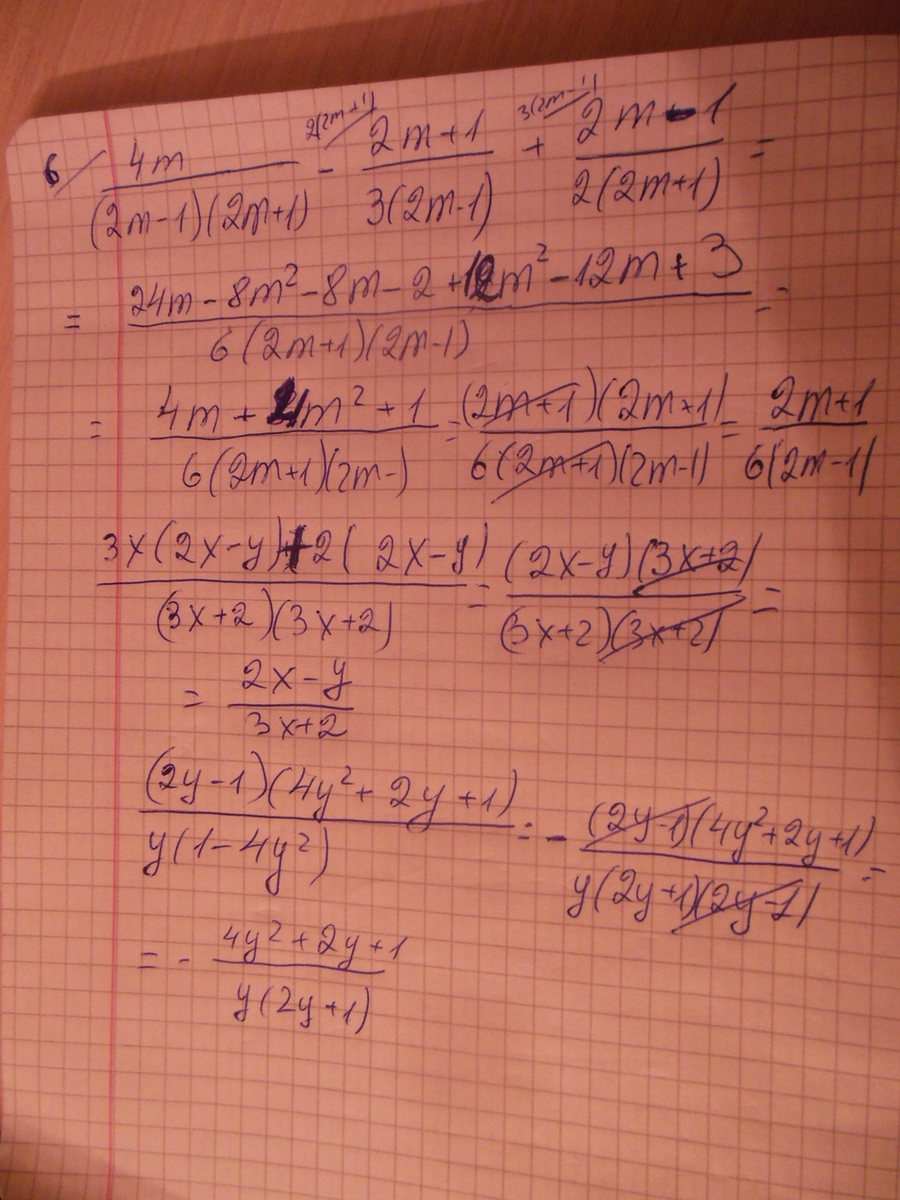 6/ 4m/((2m-1)(2m+1)) - 2(2m+1) (2m+1)/(3(2m-1)) + 3(2m-1) (2m-1)/(2(2m+1)) =
= (24m - 8m² - 8m - 2 + 12m² - 12m + 3)/(6(2m+1)(2m-1)) =
= (4m + 4m² + 1)/(6(2m+1)(2m-)) = ((2m+1)(2m+1))/(6(2m+1)(2m-1)) = (2m+1)/(6(2m-1)
(3x(2x-y)+2(2x-y))/((3x+2)(3x+2)) = ((2x-y)(3x+2))/((3x+2)(3x+2)) =
= (2x-y)/(3x+2)
((2y-1)(4y²+2y+1))/(y(1-4y²)) = - ((2y-1)(4y²+2y+1))/(y(2y+1)(2y-1)) =
= - (4y²+2y+1)/(y(2y+1))